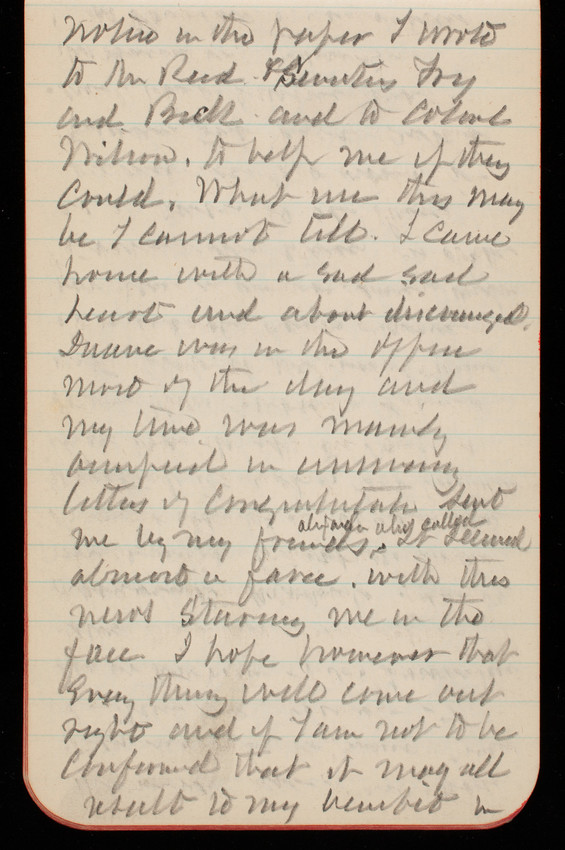 notice in the paper I wrote
to Mr Reed & Senators Fry
and Beck and to Colonel
Wilson. to help me if they
could. What use this may
be I cannot tell. I came
home with a sad sad
heart and about discouraged.
Duane was in the office
most of the day and
my time was mainly
occupied in answering
letters of Congratulation sent
also called
me by my friends. It seemed
almost a farce. with this
news Staring me in the
face I hope however that
Every thing will come out
right and if I am not to be
Confirmed that it may all
result to my benefit in